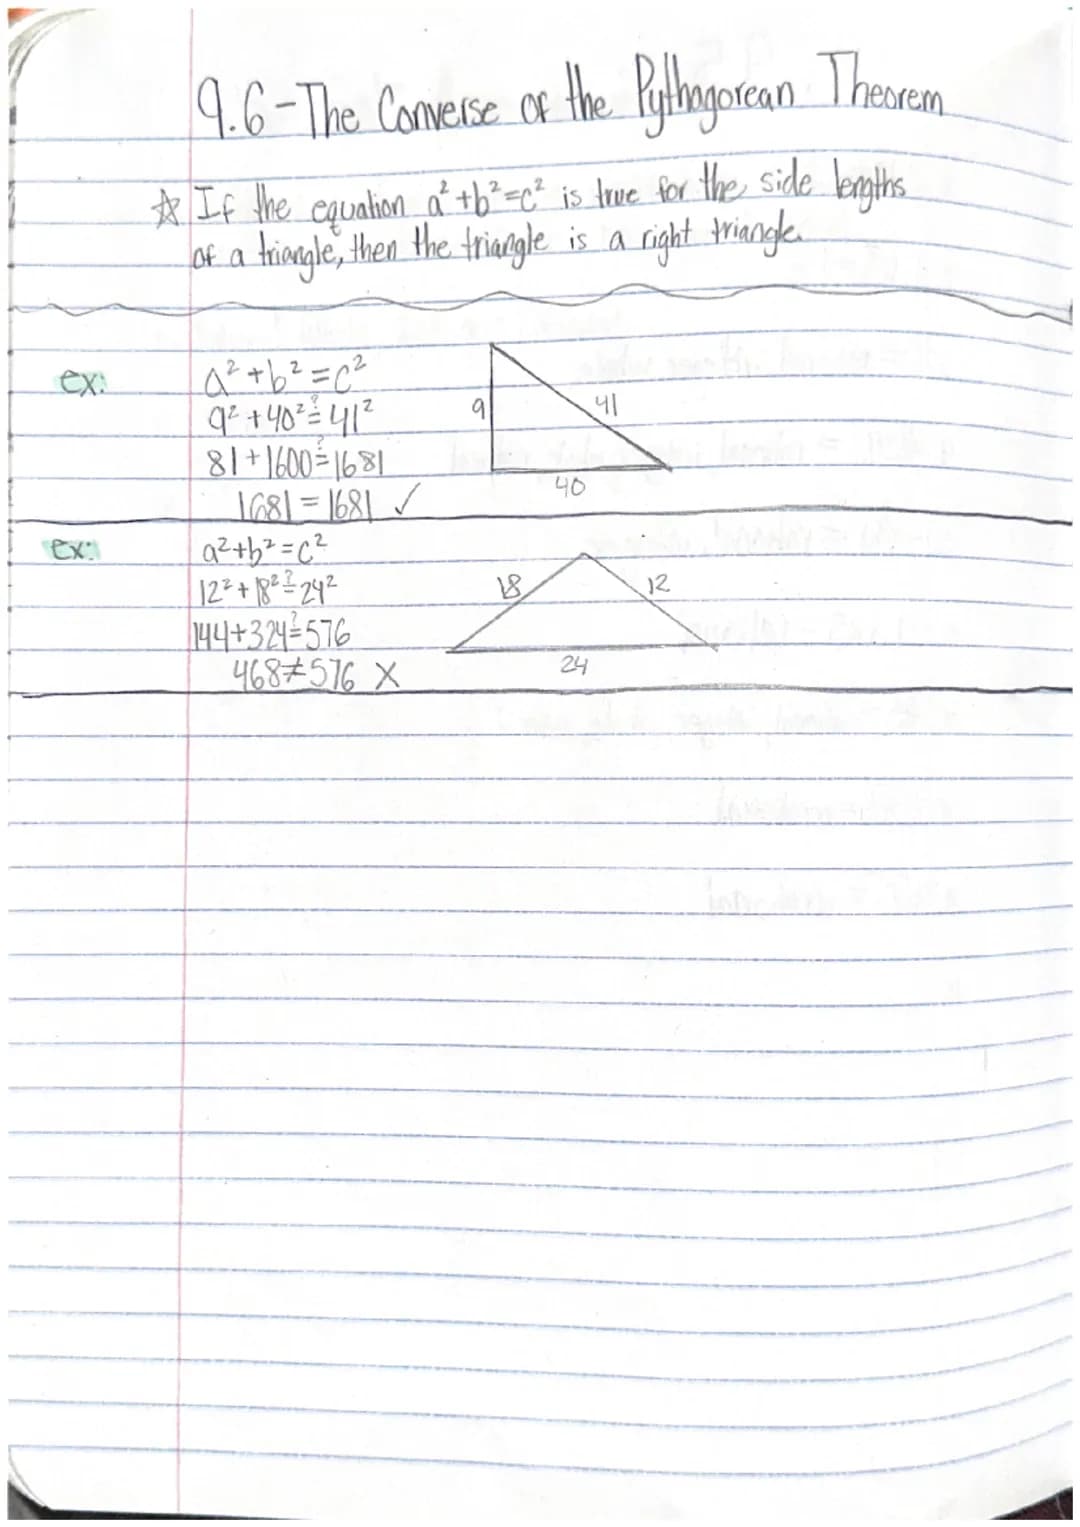 9.6-The Converse of the Pythagorean Theorem
☆ If the equation a²+b²=c² is true for the side lengths
of a triangle, then the triangle is a right triangle.
ex:
a²+b²=c²
9²+40²≟41²
81+1600≟1681
1681=1681 ✓
9
41
40
ex:
a²+b²=c²
12²+18²≟24²
144+324≟576
468≠576 X
18
12
24